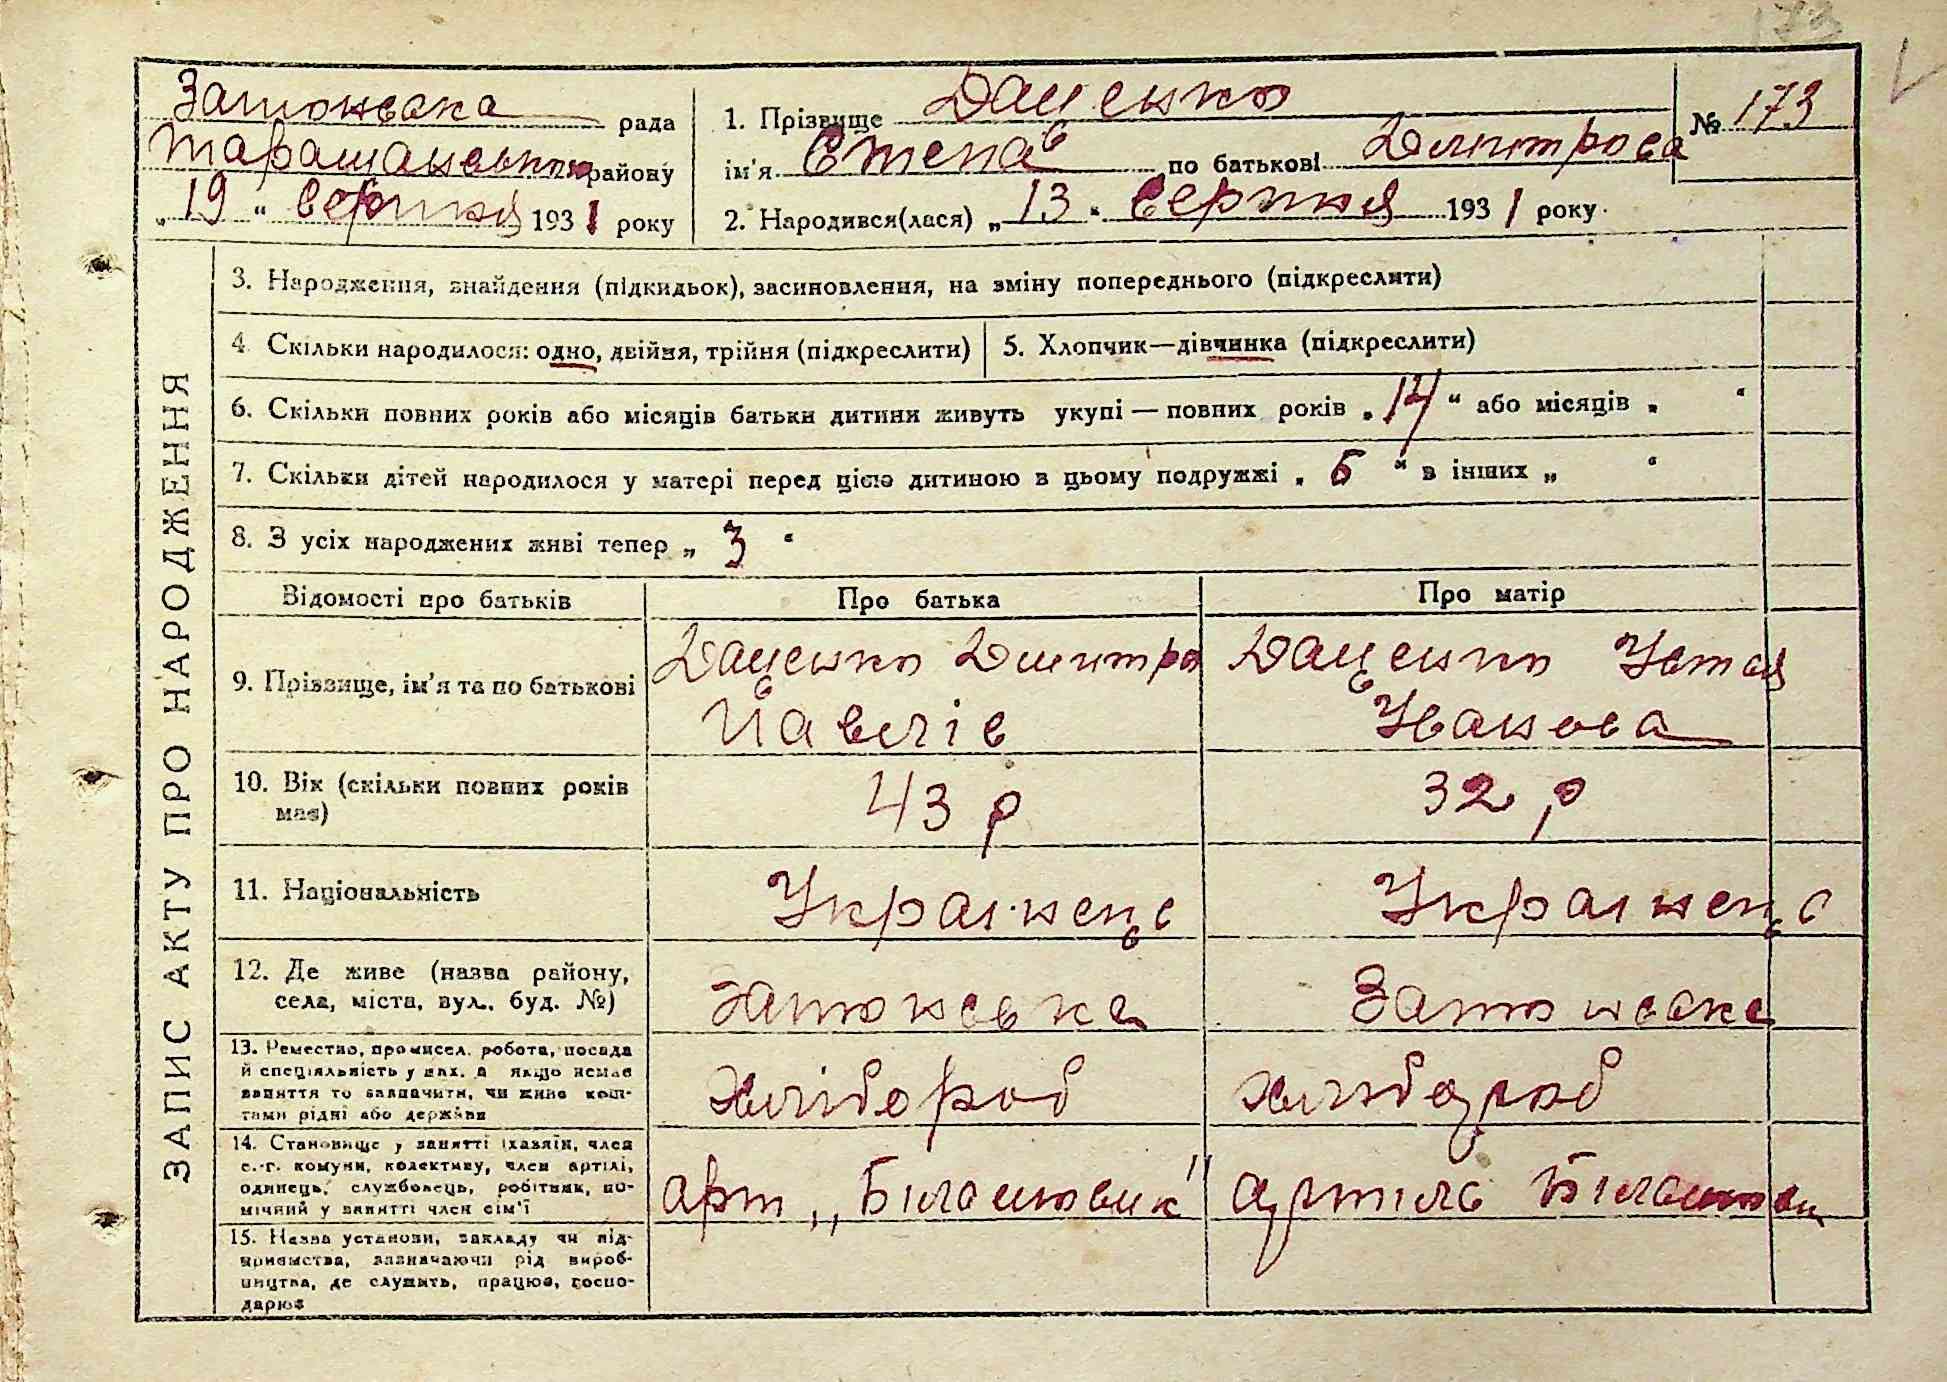 173
Затонська рада
Таращанського району
„19“ Серпня 1931 року
1. Прізвище Даценко
ім'я Степа по батькові Дмитрова
2. Народився(лася) „13“ Серпня 1931 року
№ 173
ЗАПИС АКТУ ПРО НАРОДЖЕННЯ
3. Народження, знайдення (підкидьок), засиновлення, на зміну попереднього (підкреслити)
4. Скільки народилося: одно, двійня, трійня (підкреслити)
5. Хлопчик—дівчинка (підкреслити)
6. Скільки повних років або місяців батьки дитини живуть укупі — повних років „14“ або місяців „ “
7. Скільки дітей народилося у матері перед цією дитиною в цьому подружжі „6“ в інших „ “
8. З усіх народжених живі тепер „3“
Відомості про батьків
Про батька
Про матір
9. Прізвище, ім'я та по батькові
Даценко Дмитро
Павлів
Даценко Устя
Иванова
10. Вік (скільки повних років
має)
43 р
32 р
11. Національність
Українець
Українец
12. Де живе (назва району,
села, міста, вул., буд. №)
Затонська
Затонська
13. Ремество, промисел, робота, посада
й спеціяльність у них, а якщо немає
заняття то зазначити, чи живе кош-
тами рідні або держави
хлібороб
хлібороб
14. Становище у занятті (хазяїн, член
с.-г. комуни, колективу, член артілі,
одинець, службовець, робітник, по-
мічний у занятті член сім'ї
арт „Більшовик"
артиль Більшовик
15. Назва установи, закладу чи під-
приємства, зазначаючи рід вироб-
ництва, де служить, працює, госпо-
дарює